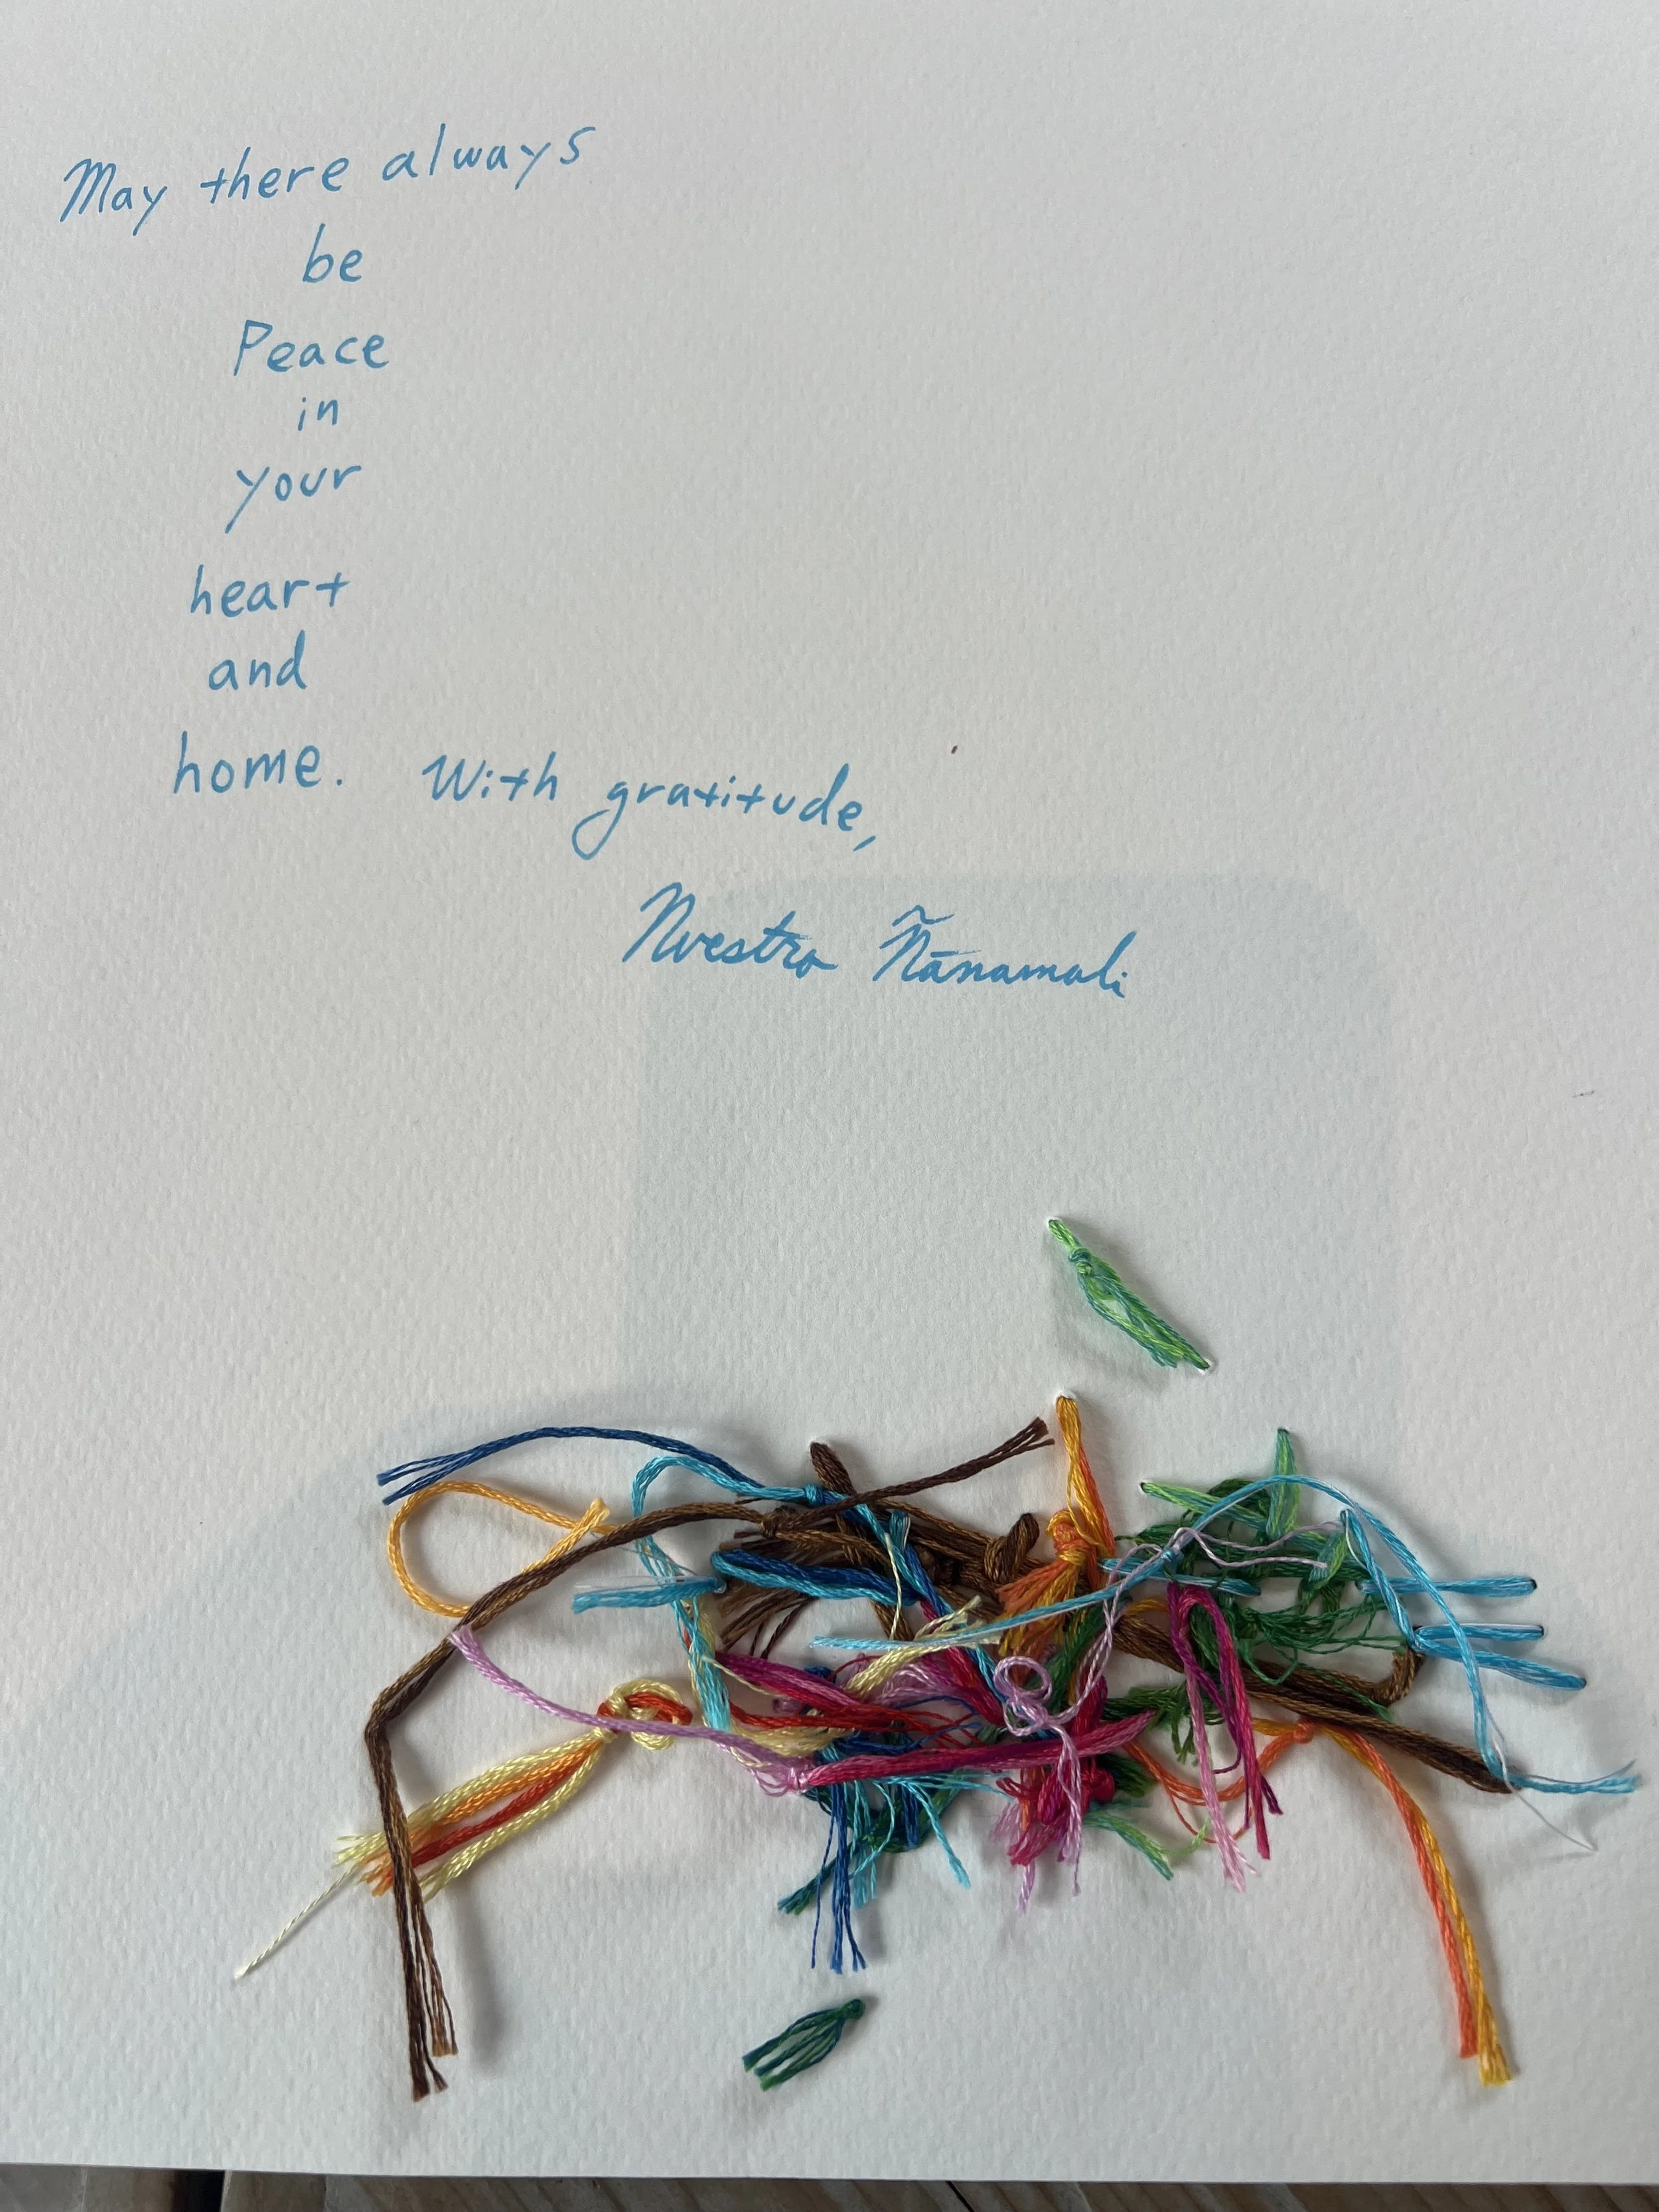 May there always
be
Peace
in
your
heart
and
home. With gratitude,
Nuestro Ñānamoli